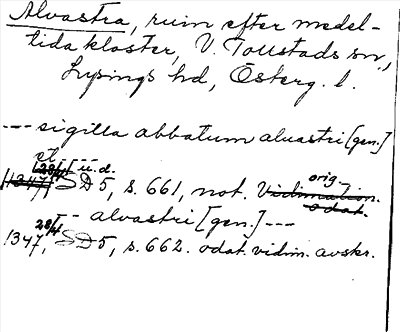 Alvastra, ruin efter medel-
tida kloster, V. Tollstads sn,
Lysings hd, Österg. l.
--- sigilla abbatum aluastri [gen.]
et ---
1347 28/4 u.d. SD 5, s. 661, not. Vidimation. orig.
odat.
--- alvastri [gen.] ---
1347 28/4, SD 5, s. 662. odat. vidim. avskr.